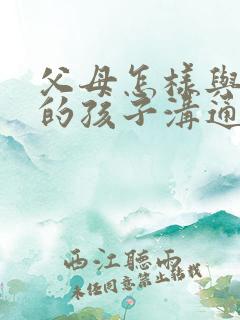 父母怎樣與
的孩子溝通
西江聽雨
未经同意禁止转载